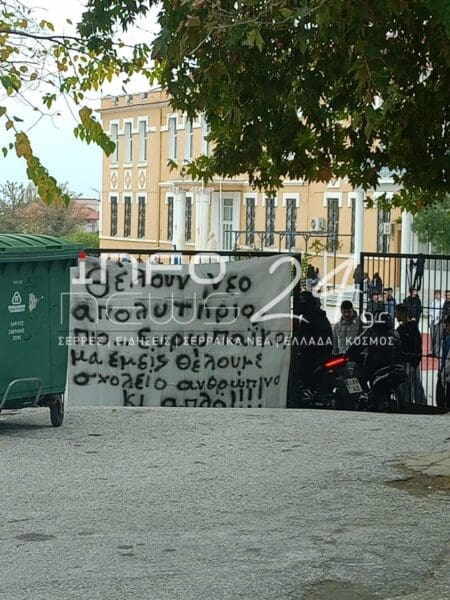 Θέλουν νέο
απολυτήριο
πιο
μα εμείς θέλουμε
σχολείο ανθρώπινο
κι απλό!!!!
news 24
ΣΕΡΡΕΣ | ΕΙΔΗΣΕΙΣ | ΣΕΡΡΑΪΚΑ ΝΕΑ | ΕΛΛΑΔΑ | ΚΟΣΜΟΣ